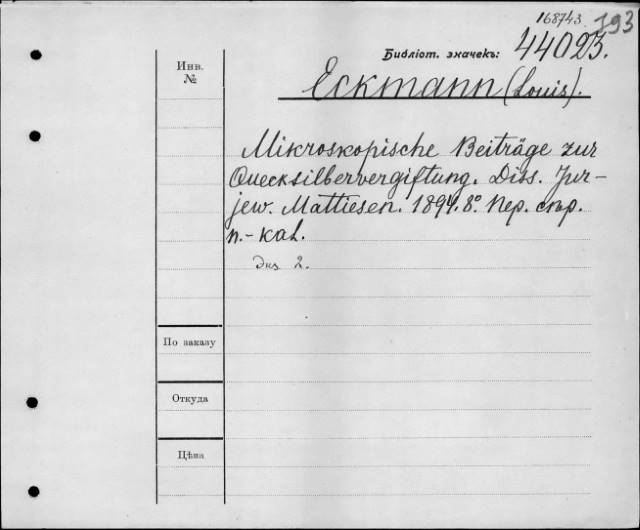 168743 193
Библіот. значекъ: 44023.
Инв.
№
Eckmann (Louis).
Mikroskopische Beiträge zur
Quecksilbervergiftung. Diss. Jur-
jew. Mattiesen. 1894. 8º Пер. стр.
н.-каl.
Экз 2.
По заказу
Откуда
Цѣна